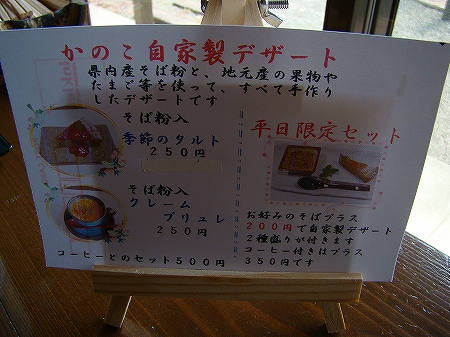 かのこ自家製デザート
県内産そば粉と、地元産の果物や
たまご等を使って、すべて手作り
したデザートです
そば粉入
季節のタルト
250円
そば粉入
クレーム
ブリュレ
250円
コーヒーとのセット500円
平日限定セット
お好みのそばプラス
200円で自家製デザート
2種盛りが付きます
コーヒー付きはプラス
350円です